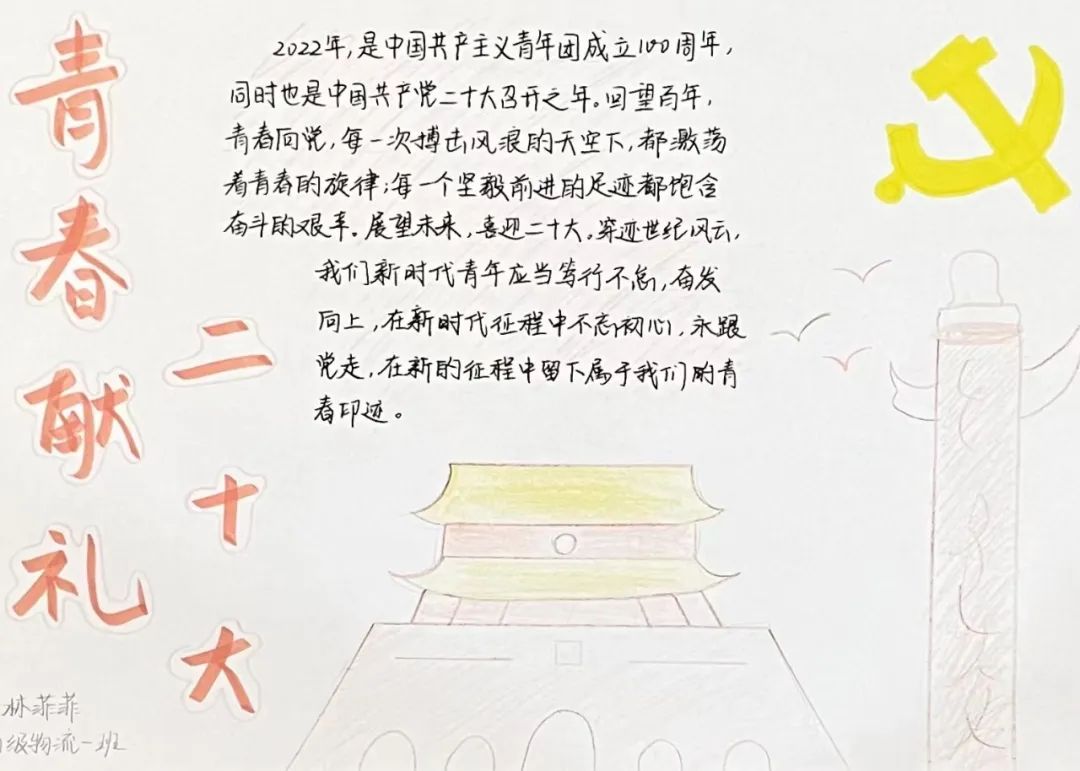 青春献礼
二十大
2022年，是中国共产主义青年团成立100周年，
同时也是中国共产党二十大召开之年。回望百年，
青春向党，每一次搏击风浪的天空下，都激荡
着青春的旋律；每一个坚毅前进的足迹都饱含
奋斗的艰辛。展望未来，喜迎二十大。穿迹世纪风云，
我们新时代青年应当笃行不怠，奋发
向上，在新时代征程中不忘初心，永跟
党走，在新的征程中留下属于我们的青
春印迹。
林菲菲
级物流一班